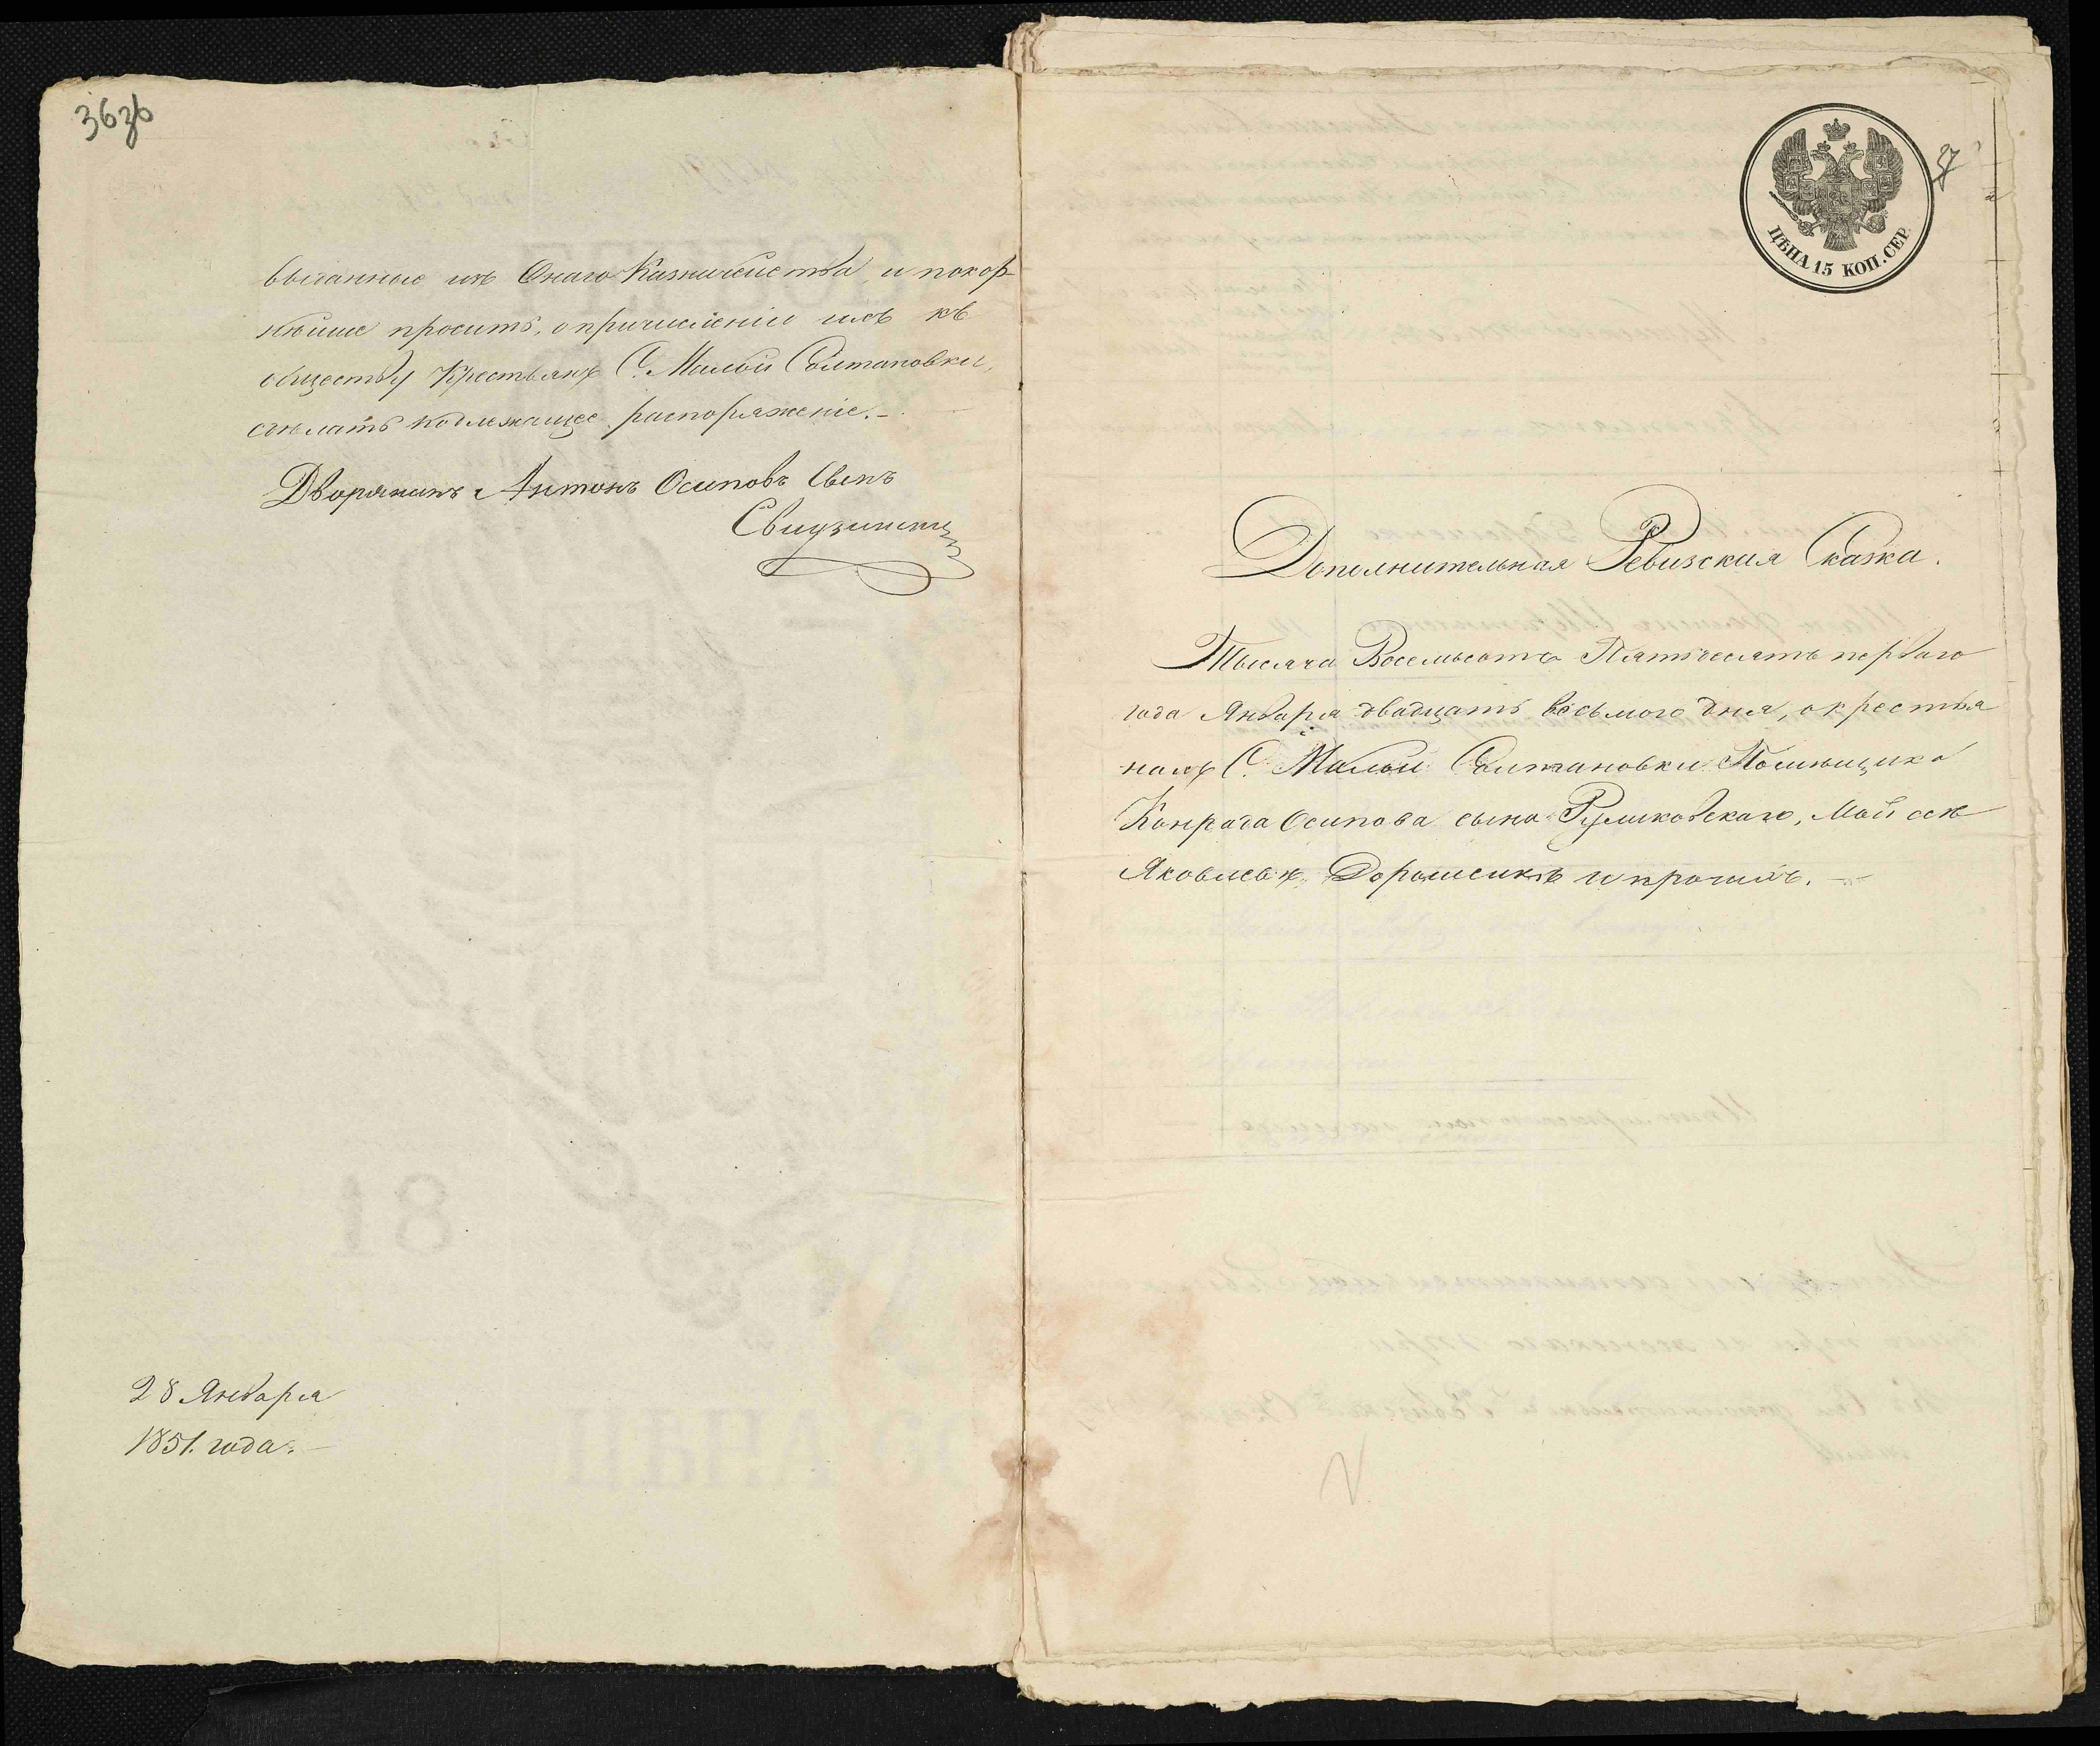 36зв
выданные изъ Онаго Казначейства, и покор-
нѣйше проситъ, о причисленіи ихъ къ
обществу Крестьянъ С. Малой Солтановки,
сдѣлать надлежащее распоряженіе.-
Дворянинъ Антонъ Осиповъ Сынъ
Свидзинскій
28 Января
1851. года.
37
ЦѢНА 15 КОП. СЕР.
Дополнительная Ревизская Сказка.
Тысяча Восемьсотъ Пятьдесятъ перваго
года Января двадцать восьмого дня, о крестья
нахъ С. Малой Солтановки Помѣщика
Конрада Осипова сына Руликовскаго,
Яковлевѣ Дорошенкѣ и прочихъ.